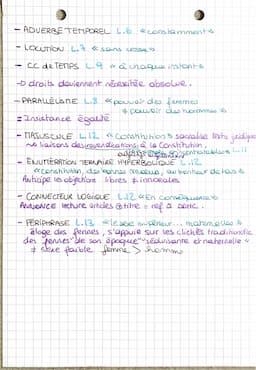 - ADVERBE TEMPOREL L.6 « constamment »
- LOCUTION L.7 « sans cesse »
- CC de TEMPS L.9 « à chaque instant »
→ droits deviennent nécessité absolue.
- PARALLÉLISME L.8 « pouvoir des femmes
≠ pouvoir des hommes »
= Insistance égalité
- MAJUSCULE L.12 « Constitution » texte juridique
→ liaisons des revendications à la Constitution,
L.11
- ÉNUMÉRATION TERNAIRE HYPERBOLIQUE L.12
« constitution, des bonnes mœurs, au bonheur de tous »
Anticipe les objections libres ≠ immorales
- CONNECTEUR LOGIQUE L.12 « En conséquence »
lecture art des titre = ref à DDHC.
- PÉRIPHRASE L.13 « le sexe supérieur... maternelles »
éloge des femmes, s'appuie sur les clichés traditionnels
des femmes de son époque "séduisante et maternelle"
≠ sexe faible femme > homme